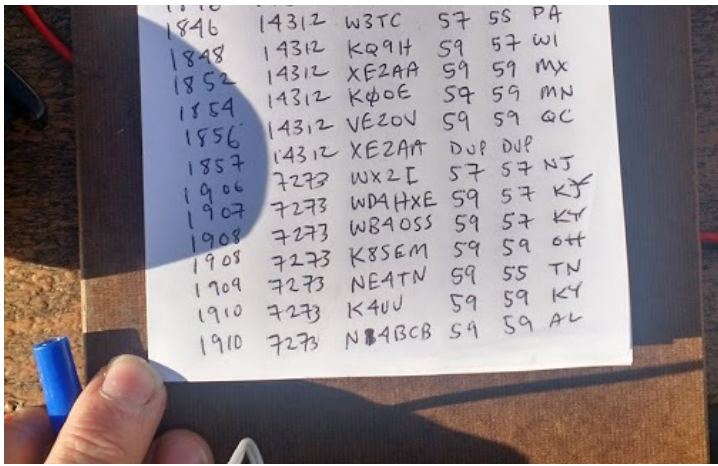 1846 14312 W3TC 57 55 PA
1848 14312 KQ9H 59 57 WI
1852 14312 XE2AA 59 59 MX
1854 14312 KØOE 57 59 MN
1856 14312 VE2OV 59 59 QC
1857 14312 XE2AA DUP DUP
1906 7273 WX2I 57 57 NJ
1907 7273 WD4HXE 59 57 KY
1908 7273 WB4OSS 59 57 KY
1908 7273 K8SEM 59 59 OH
1909 7273 NE4TN 59 55 TN
1910 7273 K4UU 59 59 KY
1910 7273 N4BCB 59 59 AL